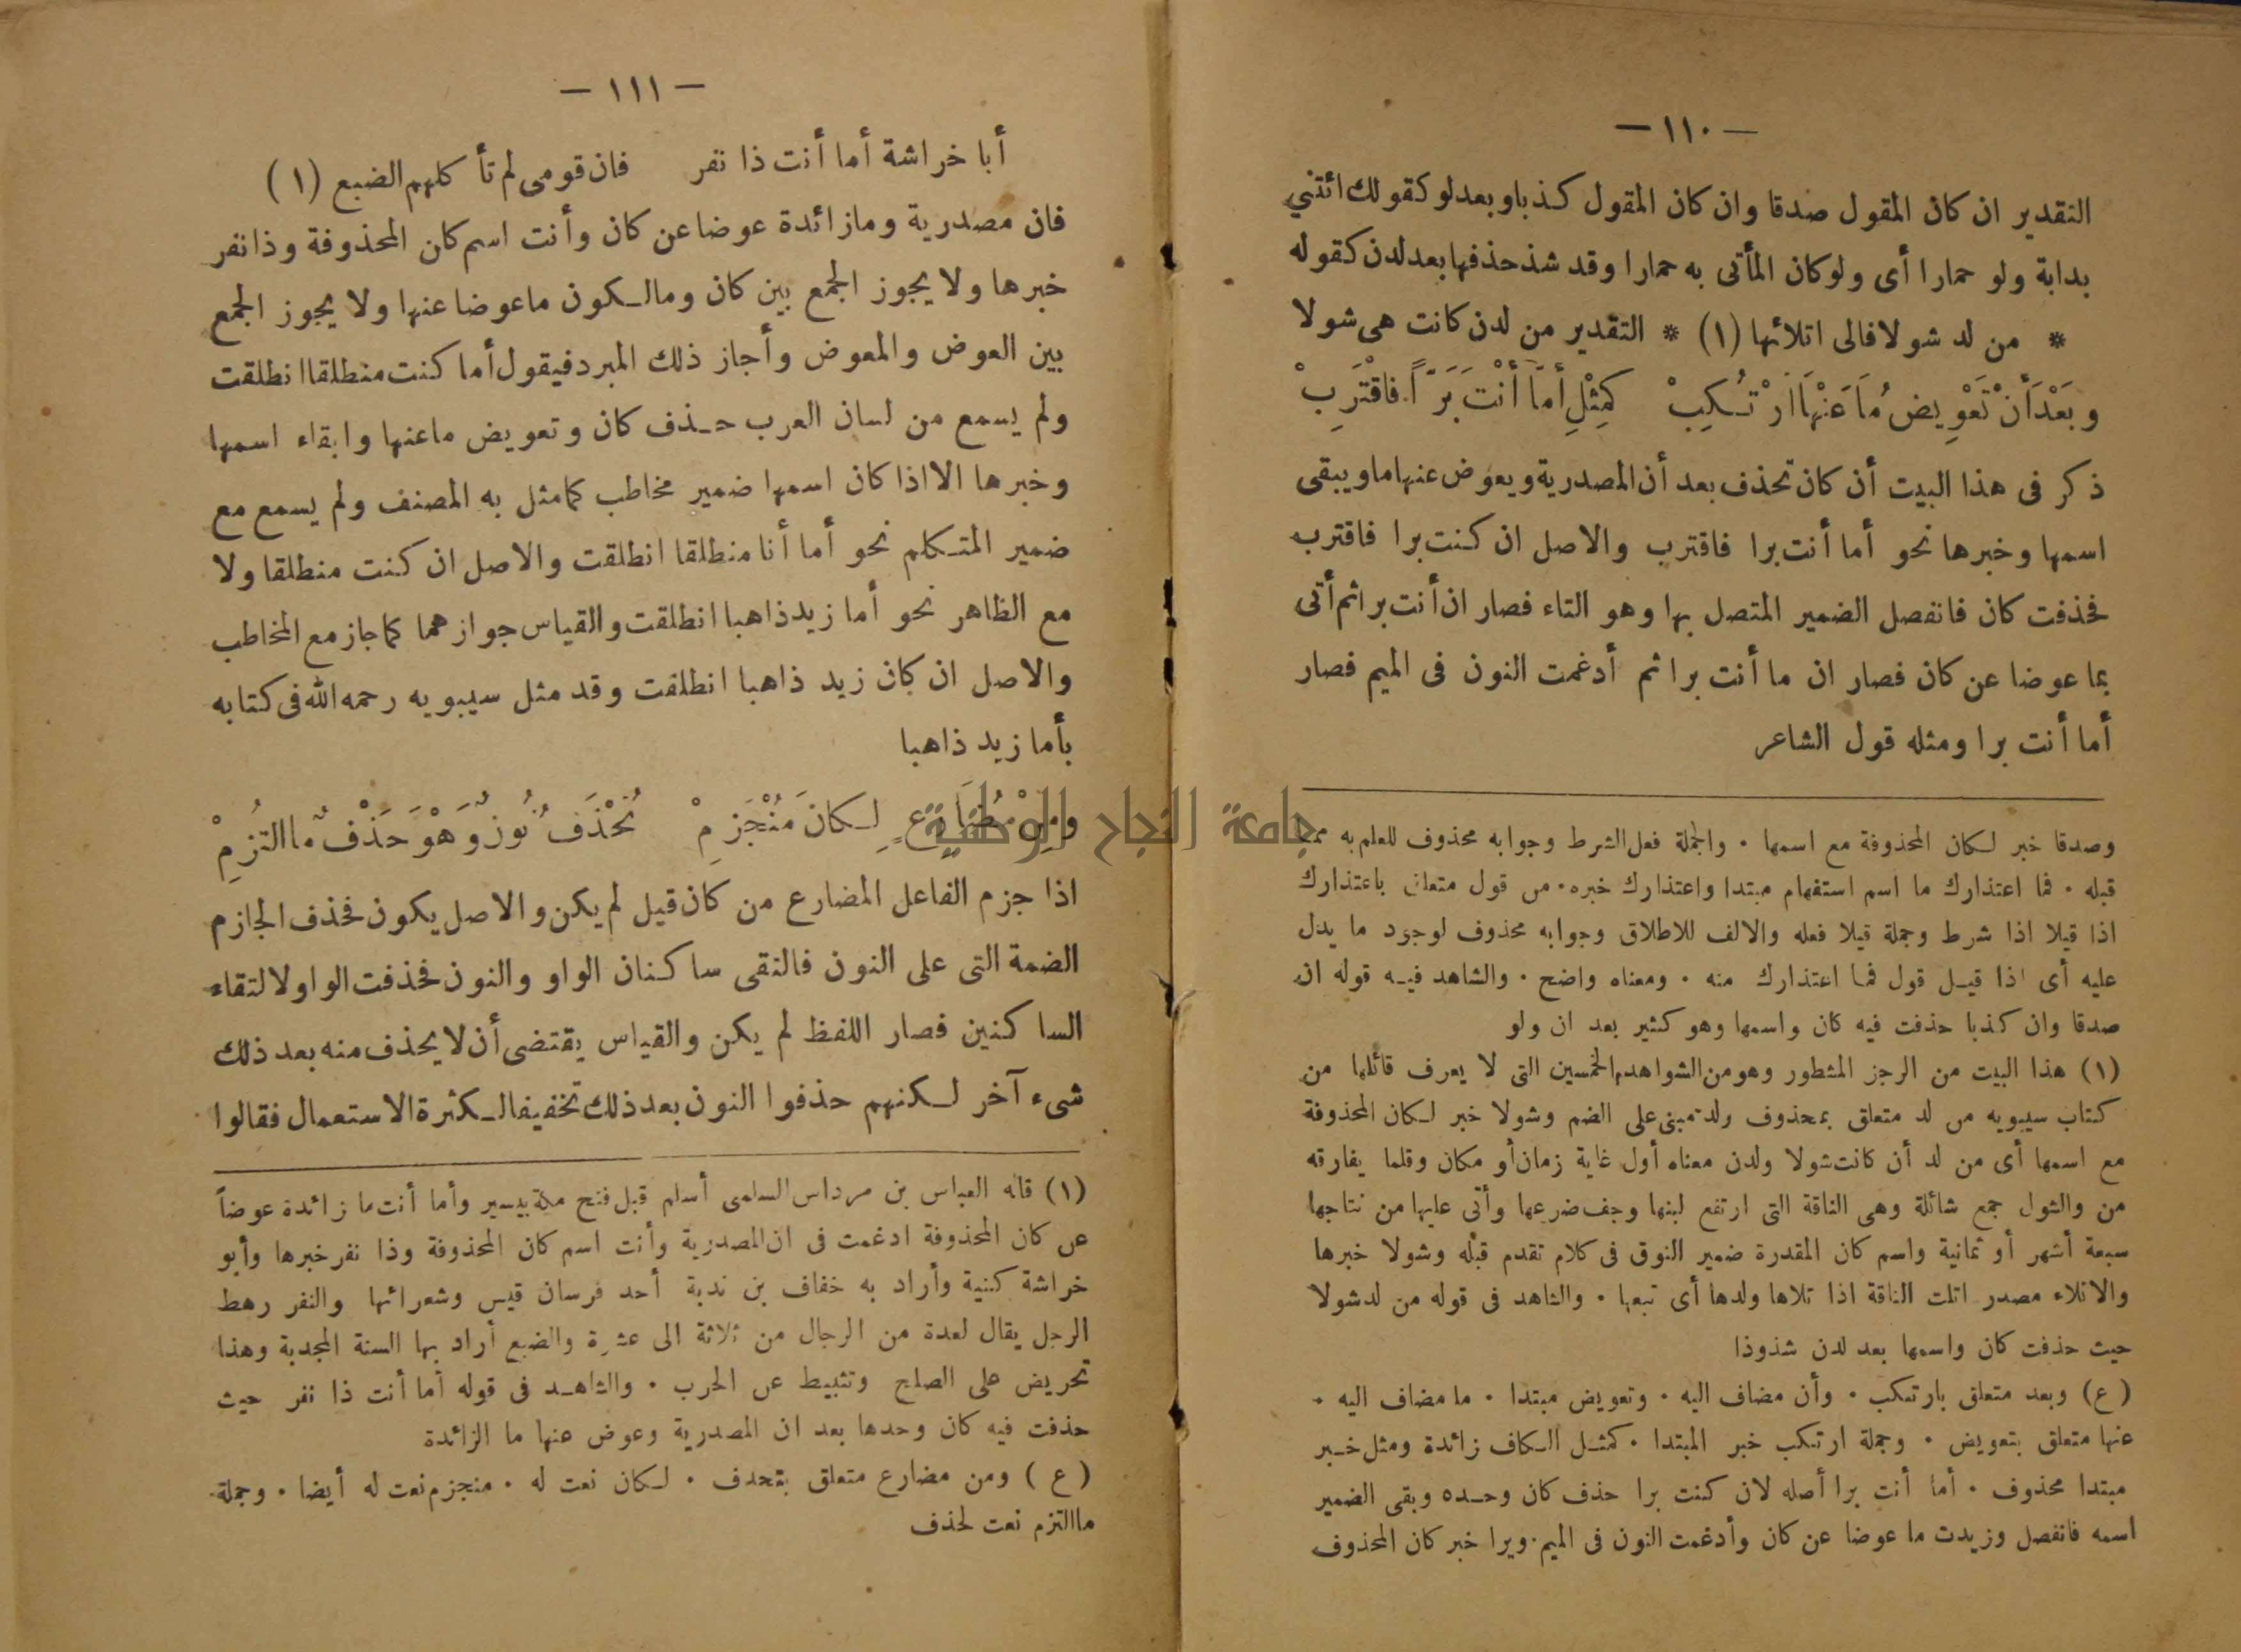 — ١١٠ —
التقدير ان كان المقول صدقا وان كان المقول كذباو بعدلو كقولك ائتني
بدابة ولو حمارا أى ولوكان المأتى به حمارا وقد شذحذفها بعدلدن كقوله
* من لد شولا فالى اتلائها (١) * التقدير من لدن كانت هى شولا
وبَعْدَ أَنْ تَعْوِيضُ مَا عَنْهَا ارْتُكِبْ كَمِثْلِ أَمَّا أَنْتَ بَرًّا فَاقْتَرِبْ
ذكر فى هذا البيت أن كان تحذف بعد أن المصدرية ويعوض عنهاما ويبقى
اسمها وخبرها نحو أما أنت برا فاقترب والاصل ان كنت برا فاقترب
فحذفت كان فانفصل الضمير المتصل بها وهو التاء فصار ان أنت برا ثم أتى
بما عوضا عن كان فصار ان ما أنت برا ثم أدغمت النون فى الميم فصار
أما أنت برا ومثله قول الشاعر
وصدقا خبر لكان المحذوفة مع اسمها . والجملة فعل الشرط وجوابه محذوف للعلم به مما
قبله . فما اعتذارك ما اسم استفهام مبتدا واعتذارك خبره . من قول متعلق باعتذارك
اذا قيلا اذا شرط وجملة قيلا فعله والالف للاطلاق وجوابه محذوف لوجود ما يدل
عليه أى اذا قيل قول فما اعتذارك منه . ومعناه واضح . والشاهد فيه قوله ان
صدقا وان كذبا حذفت فيه كان واسمها وهو كثير بعد ان ولو
(١) هذا البيت من الرجز المشطور وهو من الشواهد الخمسين التى لا يعرف قائلها من
كتاب سيبويه من لد متعلق بمحذوف ولد مبنى على الضم وشولا خبر لكان المحذوفة
مع اسمها أى من لد أن كانت شولا ولدن معناه أول غاية زمان أو مكان وقلما يفارقه
من والشول جمع شائلة وهى الناقة التى ارتفع لبنها وجف ضرعها وأتى عليها من نتاجها
سبعة أشهر أو ثمانية واسم كان المقدرة ضمير النوق فى كلام تقدم قبله وشولا خبرها
والاتلاء مصدر اتلت الناقة اذا تلاها ولدها أى تبعها . والشاهد فى قوله من لد شولا
حيث حذفت كان واسمها بعد لدن شذوذا
(ع) وبعد متعلق بارتكب . وأن مضاف اليه . وتعويض مبتدا . ما مضاف اليه .
عنها متعلق بتعويض . وجملة ارتكب خبر المبتدا . كمثل الكاف زائدة ومثل خبر
مبتدا محذوف . أما أنت برا أصله لان كنت برا حذف كان وحده وبقى الضمير
اسمه فانفصل وزيدت ما عوضا عن كان وأدغمت النون فى الميم . وبرا خبر كان المحذوف
— ١١١ —
أبا خراشة أما أنت ذا نفر فان قومى لم تأكلهم الضبع (١)
فان مصدرية وما زائدة عوضا عن كان وأنت اسم كان المحذوفة وذا نفر
خبرها ولا يجوز الجمع بين كان وما لكون ما عوضا عنها ولا يجوز الجمع
بين العوض والمعوض وأجاز ذلك المبرد فيقول أما كنت منطلقا انطلقت
ولم يسمع من لسان العرب حذف كان وتعويض ما عنها وابقاء اسمها
وخبرها الا اذا كان اسمها ضمير مخاطب كما مثل به المصنف ولم يسمع مع
ضمير المتكلم نحو أما أنا منطلقا انطلقت والاصل ان كنت منطلقا ولا
مع الظاهر نحو أما زيد ذاهبا انطلقت والقياس جوازهما كما جاز مع المخاطب
والاصل ان كان زيد ذاهبا انطلقت وقد مثل سيبويه رحمه الله فى كتابه
بأما زيد ذاهبا
ومِنْ مُضَارِعٍ لِكَانَ مُنْجَزِمْ تُحْذَفُ نُونٌ وَهْوَ حَذْفٌ مَا التُزِمْ
جامعة النجاح الوطنية
اذا جزم الفاعل المضارع من كان قيل لم يكن والاصل يكون فحذف الجازم
الضمة التى على النون فالتقى ساكنان الواو والنون فحذفت الواو لالتقاء
الساكنين فصار اللفظ لم يكن والقياس يقتضى أن لا يحذف منه بعد ذلك
شىء آخر لكنهم حذفوا النون بعد ذلك تخفيفا لكثرة الاستعمال فقالوا
(١) قاله العباس بن مرداس السلمى أسلم قبل فتح مكة بيسير وأما أنت ما زائدة عوضاً
عن كان المحذوفة ادغمت فى ان المصدرية وأنت اسم كان المحذوفة وذا نفر خبرها وأبو
خراشة كنية وأراد به خفاف بن ندبة أحد فرسان قيس وشعرائها والنفر رهط
الرجل يقال لعدة من الرجال من ثلاثة الى عشرة والضبع أراد بها السنة المجدبة وهذا
تحريض على الصلح وتثبيط عن الحرب . والشاهد فى قوله أما أنت ذا نفر حيث
حذفت فيه كان وحدها بعد ان المصدرية وعوض عنها ما الزائدة
(ع) ومن مضارع متعلق بتحذف . لكان نعت له . منجزم نعت له أيضا . وجملة
ما التزم نعت لحذف